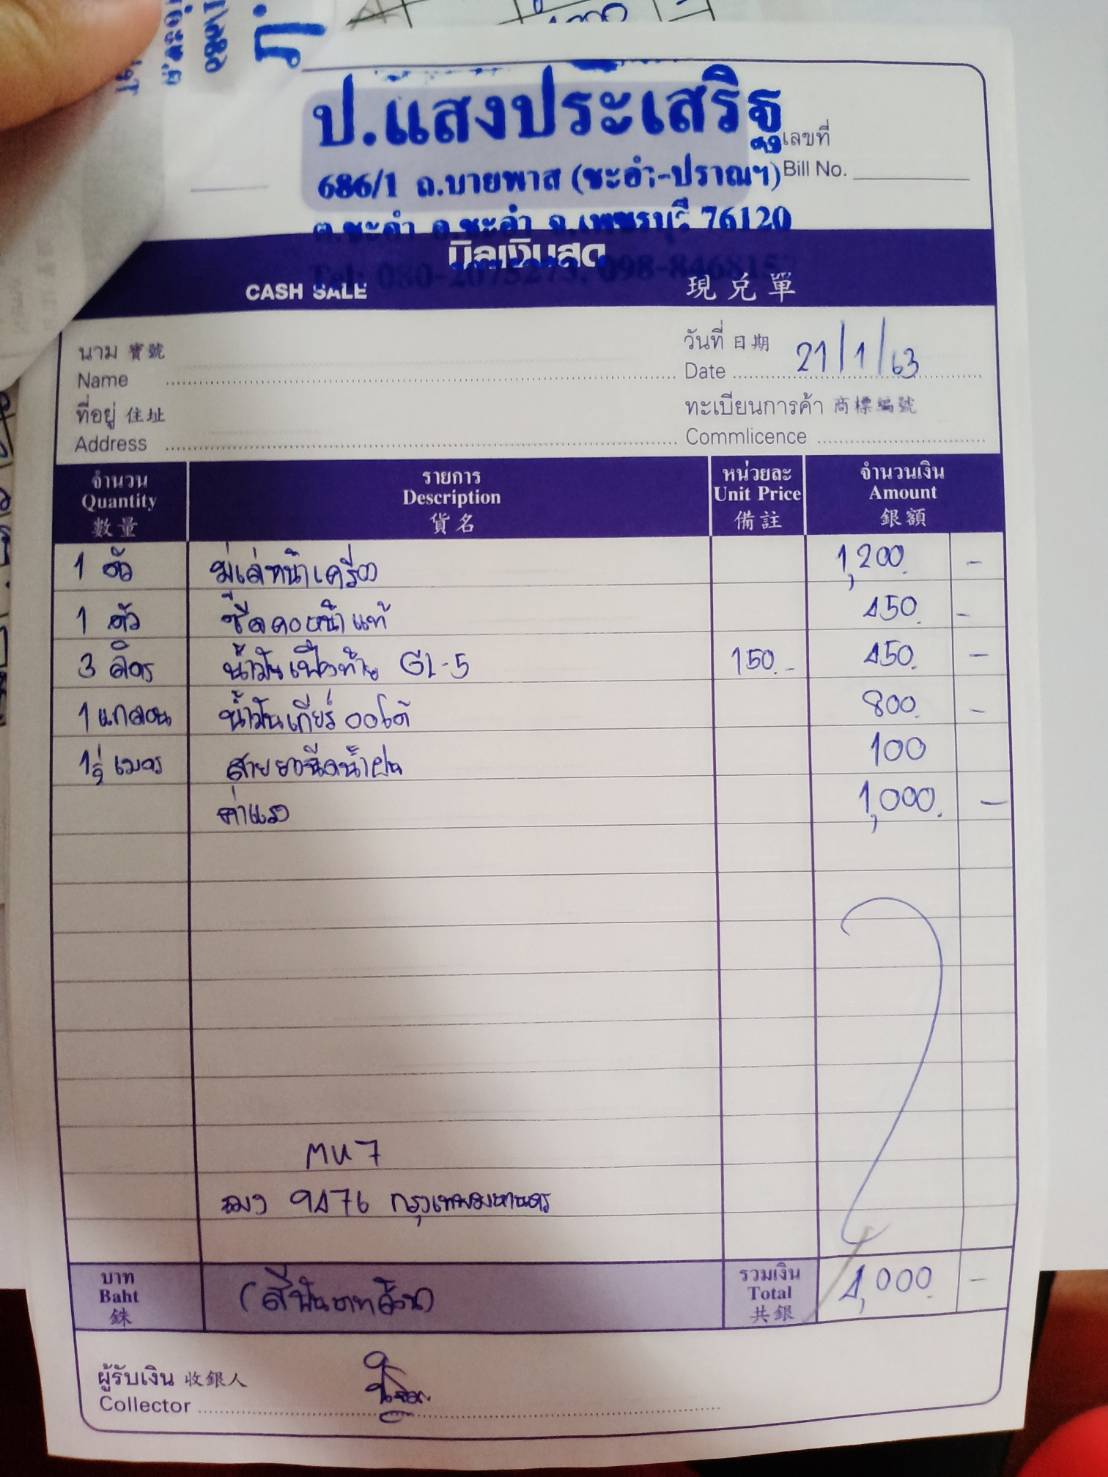 ป.แสงประเสริฐ
686/1 ถ.บายพาส (ชะอำ-ปราณฯ)
ต.ชะอำ อ.ชะอำ จ.เพชรบุรี 76120
เลขที่
Bill No.
บิลเงินสด
CASH SALE 現兌單
นาม 寶號
Name
วันที่ 日期
Date 21/1/63
ที่อยู่ 住址
Address
ทะเบียนการค้า 商標編號
Commlicence
จำนวน รายการ หน่วยละ จำนวนเงิน
Quantity Description Unit Price Amount
數量 貨名 備註 銀額
1 ตัว มู่เล่หน้าเครื่อง 1,200.-
1 ตัว ซีลคอหน้าแท้ 450.-
3 ลิตร น้ำมันเฟืองท้าย GL-5 150.- 450.-
1 แกลอน น้ำมันเกียร์ออโต้ 800.-
1 ½ เมตร สายยางฉีดน้ำฝน 100
ค่าแรง 1,000.-
MU7
9476 กรุงเทพมหานคร
บาท
Baht
銖
(สี่พันบาทถ้วน)
รวมเงิน
Total
共銀
4,000.-
ผู้รับเงิน 收銀人
Collector